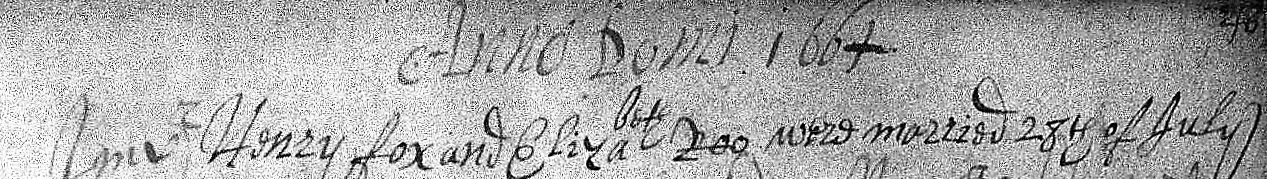 Anno Domi 1664
Henry fox and Elizabeth Roo were married 28th of July